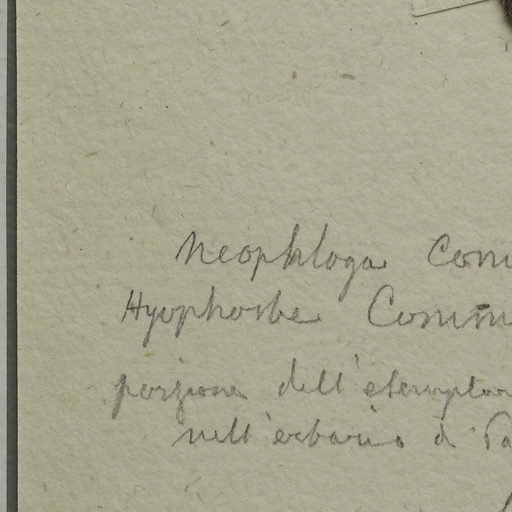 Neophloga Com
Hyophorbe Comm
porzione dell'esemplar
nell'erbario di Pa